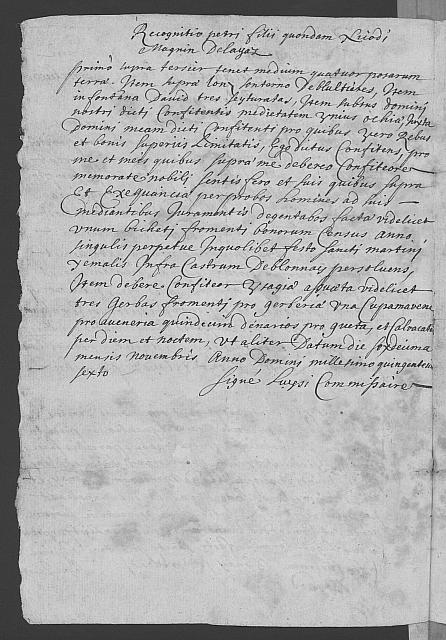 Recognitio petri filii quondam Livodi
Magnin Delayaz
primo supra tersier tenet medium quatuor posarum
terræ, Item supra Lon sonterno Deblultiées, Item
in fontana David tres seyturatas, Item subtus domini
nostri dicti Confitentis medietatem Unius ochiæ Juxta
Domini meam dicti Confitenti pro quibus Vero Rebus
et bonis superius Limitatis, Ego dictus Confitens, pro
me et meis quibus supra me debereo Confiteor
memorate nobili sentis fero et suis quibus supra
Et Exequancia per probos homines ad suis
mediantibus Juramentis degentabos facta videlicet
Vnum bicheti fromenti bonorum Census anno
singulis perpetue Inquolibet festo sancti martini
yemalis Infra Castrum Deblonnay persoluens,
Item debere Confiteor Vsagia apueta videlicet
tres Gerbas fromenti pro gerberia Vna Cupam avene
pro aveneria quindecim denarios pro gueta, et Calvacata
per diem et noctem, Vt aliter Datum die sexdecima
mensis novembris Anno Domini millesimo quingentesi
sexto Signé Luysi Commissaire